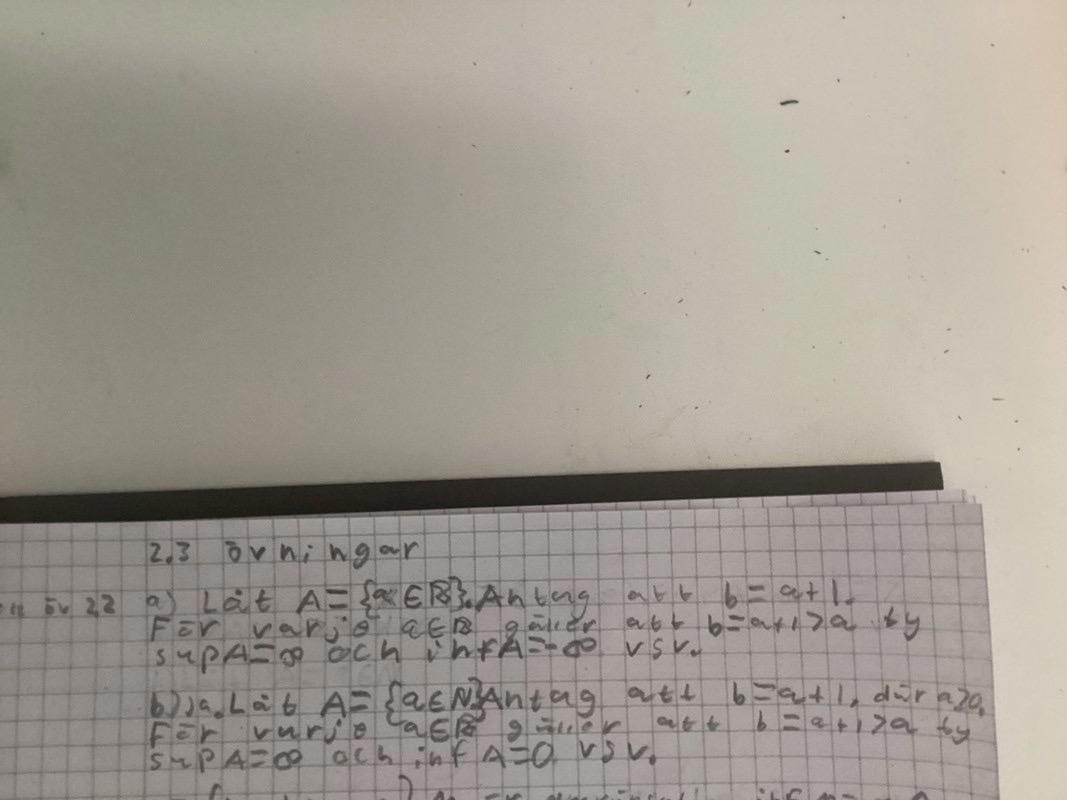 2.3 övningar
öv 22 a) Låt A={a∈ℝ}. Antag att b=a+1.
För varje a∈ℝ gäller att b=a+1>a ty
supA=∞ och infA=-∞ vsv.
b) ja. Låt A={a∈N} Antag att b=a+1, där a≥0.
För varje a∈ℝ gäller att b=a+1>a ty
supA=∞ och infA=0 vsv.